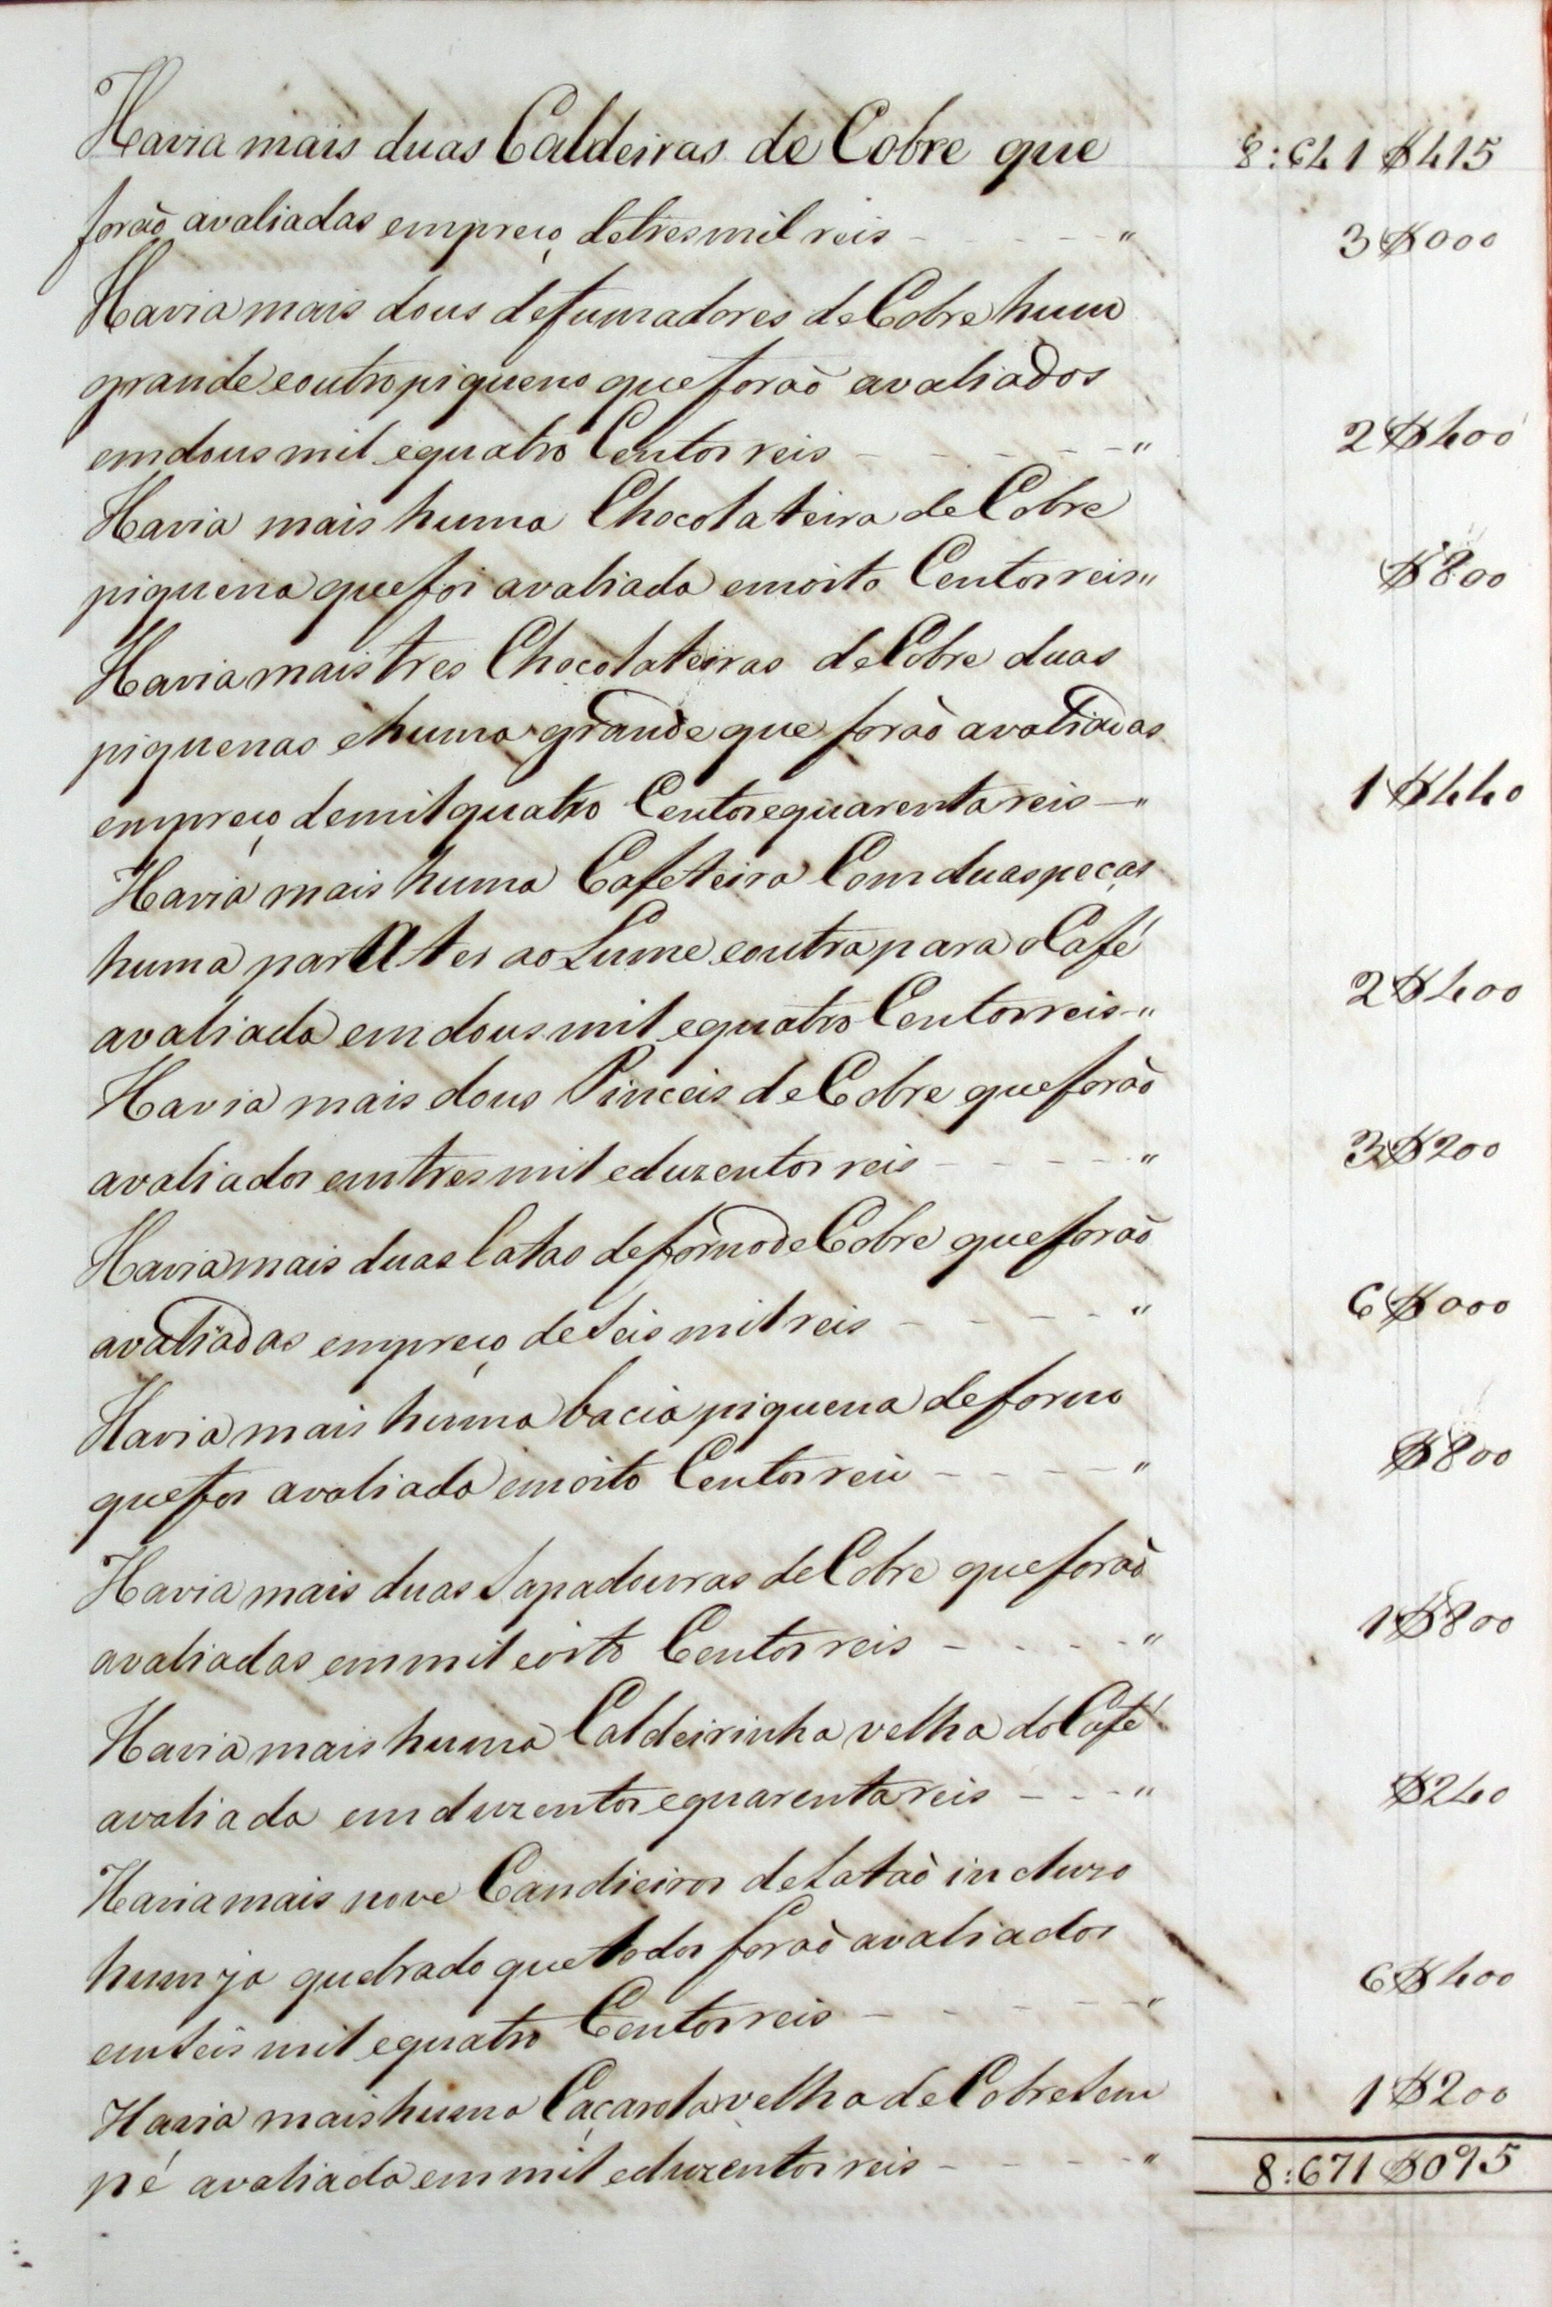 Havia mais duas Caldeiras de Cobre que 8:641$415
forão avaliadas em preço de tres mil reis - - - - " 3$000
Havia mais dous defumadores de Cobre hum
grande e outro piqueno que forão avaliados
em dous mil e quatro Centos reis - - - - - " 2$400
Havia mais huma Chocolateira de Cobre
piquena que foi avaliada em oito Centos reis " $800
Havia mais tres Chocolateiras de Cobre duas
piquenas e huma grande que forão avaliadas
em preço de mil quatro Centos e quarenta reis - " 1$440
Havia mais huma Cafeteira Com duas peças
huma para ter ao Lume e outra para o Café
avaliada em dous mil e quatro Centos reis - " 2$400
Havia mais dous Pinceis de Cobre que forão
avaliados em tres mil e duzentos reis - - - - " 3$200
Havia mais duas latas de forno de Cobre que forão
avaliadas em preço de seis mil reis - - - - " 6$000
Havia mais huma bacia piquena de forno
que foi avaliada em oito Centos reis - - - - " $800
Havia mais duas Tapadouras de Cobre que forão
avaliadas em mil e oito Centos reis - - - - " 1$800
Havia mais huma Caldeirinha velha do Café
avaliada em duzentos e quarenta reis - - - " $240
Havia mais nove Candieiros de Latão incluzo
hum ja quebrado que todos forão avaliados
em seis mil e quatro Centos reis - - - - - " 6$400
Havia mais huma Caçarola velha de Cobre sem
pé avaliada em mil e duzentos reis - - - - " 1$200
8:671$095